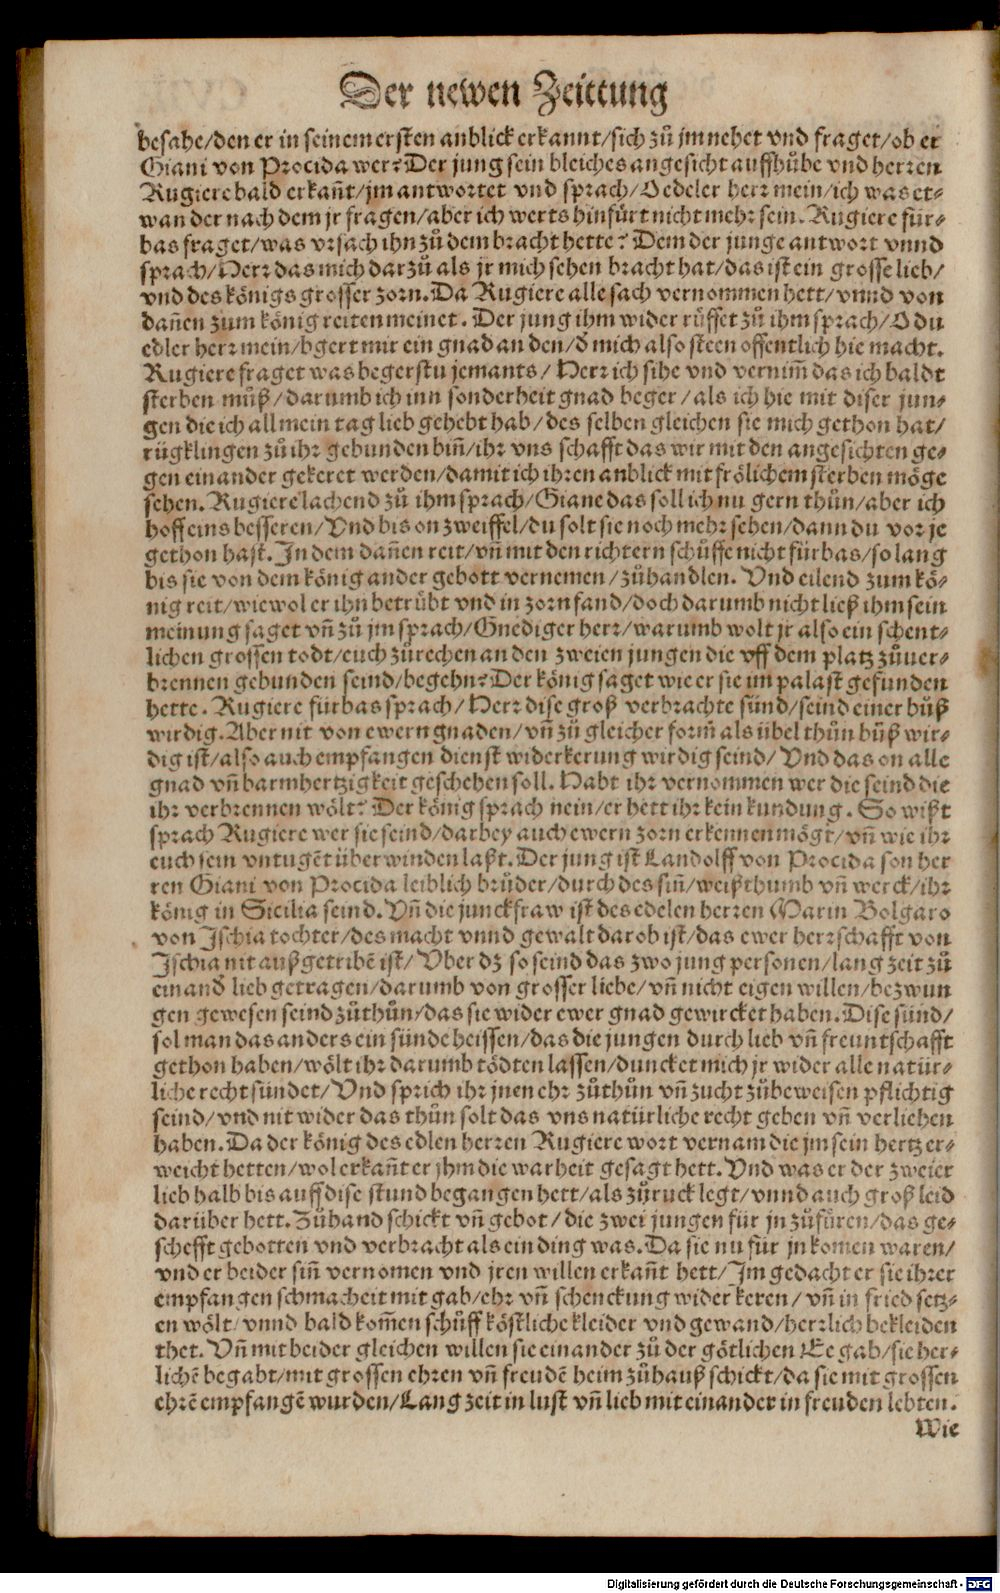 Der newen Zeittung
besahe/den er in seinem ersten anblick erkannt/sich zů jm nehet vnd fraget/ob er
Giani von Procida wer? Der jung sein bleiches angesicht auffhůbe vnd herren
Rugiere bald erkañt/jm antwortet vnd sprach/O edeler herr mein/ich was et-
wan der nach dem jr fragen/aber ich werts hinfürt nicht mehr sein. Rugiere für-
bas fraget/was vrsach ihn zů dem bracht hette? Dem der junge antwort vnnd
sprach/Herr das mich darzů als jr mich sehen bracht hat/das ist ein grosse lieb/
vnd des königs grosser zorn. Da Rugiere alle sach vernommen hett/vnnd von
dañen zum könig reiten meinet. Der jung ihm wider rüffet zů ihm sprach/O du
edler herr mein/bgert mir ein gnad an den/d mich also steen offentlich hie macht.
Rugiere fraget was begerstu jemants/Herr ich sihe vnd vernim̃ das ich baldt
sterben můß/darumb ich inn sonderheit gnad beger/als ich hie mit diser jun-
gen die ich all mein tag lieb gehebt hab/des selben gleichen sie mich gethon hat/
rügklingen zů ihr gebunden biñ/ihr vns schafft das wir mit den angesichten ge-
gen einander gekeret werden/damit ich ihren anblick mit frölichem sterben möge
sehen. Rugiere lachend zů ihm sprach/Giane das soll ich nu gern thůn/aber ich
hoff eins besseren/Vnd bis on zweiffel/du solt sie noch mehr sehen/dann du vor je
gethon hast. In dem dañen reit/vñ mit den richtern schůffe nicht fürbas/so lang
bis sie von dem könig ander gebott vernemen/zůhandlen. Vnd eilend zum kö-
nig reit/wiewol er ihn betrübt vnd in zorn fand/doch darumb nicht ließ ihm sein
meinung saget vñ zů jm sprach/Gnediger herr/warumb wolt jr also ein schent-
lichen grossen todt/euch zůrechen an den zweien jungen die vff dem platz zůuer-
brennen gebunden seind/begehn? Der könig saget wie er sie im palast gefunden
hette. Rugiere fürbas sprach/Herr dise groß verbrachte sünd/seind einer bůß
wirdig. Aber nit von ewern gnaden/vñ zů gleicher form̃ als übel thůn bůß wir-
dig ist/also auch empfangen dienst widerkerung wirdig seind/Vnd das on alle
gnad vñ barmhertzigkeit geschehen soll. Habt ihr vernommen wer die seind die
ihr verbrennen wölt? Der könig sprach nein/er hett ihr kein kundung. So wißt
sprach Rugiere wer sie seind/darbey auch ewern zorn erkennen mögt/vñ wie ihr
euch sein vntugẽt überwinden laßt. Der jung ist Landolff von Procida son her
ren Giani von Procida leiblich brůder/durch des siñ/weißthumb vñ werck/ihr
könig in Sicilia seind. Vñ die junckfraw ist des edelen herren Marin Bolgaro
von Ischia tochter/des macht vnnd gewalt darob ist/das ewer herrschafft von
Ischia nit außgetribẽ ist/Vber dz so seind das zwo jung personen/lang zeit zů
einand lieb getragen/darumb von grosser liebe/vñ nicht eigen willen/bezwun
gen gewesen seind zůthůn/das sie wider ewer gnad gewircket haben. Dise sünd/
sol man das anders ein sünde heissen/das die jungen durch lieb vñ freuntschafft
gethon haben/wölt ihr darumb tödten lassen/duncket mich jr wider alle natür-
liche recht sündet/Vnd sprich ihr jnen ehr zůthůn vñ zucht zůbeweisen pflichtig
seind/vnd nit wider das thůn solt das vns natürliche recht geben vñ verliehen
haben. Da der könig des edlen herren Rugiere wort vernam die jm sein hertz er-
weicht hetten/wol erkañt er jhm die warheit gesagt hett. Vnd was er der zweier
lieb halb bis auff dise stund begangen hett/als zůruck legt/vnnd auch groß leid
darüber hett. Zůhand schickt vñ gebot/die zwei jungen für jn zůfüren/das ge-
schefft gebotten vnd verbracht als ein ding was. Da sie nu für jn komen waren/
vnd er beider siñ vernomen vnd jren willen erkañt hett/Im gedacht er sie ihrer
empfangen schmacheit mit gab/ehr vñ schenckung wider keren/vñ in fried setz-
en wölt/vnnd bald kom̃en schůff köstliche kleider vnd gewand/herrlich bekleiden
thet. Vñ mit beider gleichen willen sie einander zů der götlichen Ee gab/sie her-
lichẽ begabt/mit grossen ehren vñ freudẽ heim zůhauß schickt/da sie mit grossen
ehrẽ empfangẽ wurden/Lang zeit in lust vñ lieb mit einander in freuden lebten.
Wie
Digitalisierung gefördert durch die Deutsche Forschungsgemeinschaft - DFG